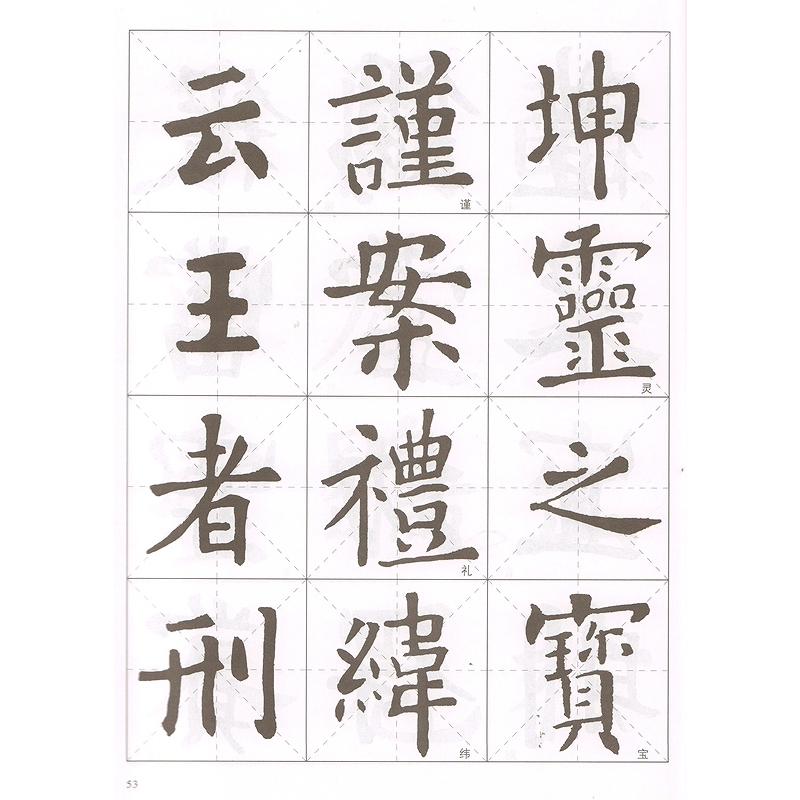 坤靈之寶
灵
宝
謹案禮緯
谨
礼
纬
云王者刑
53